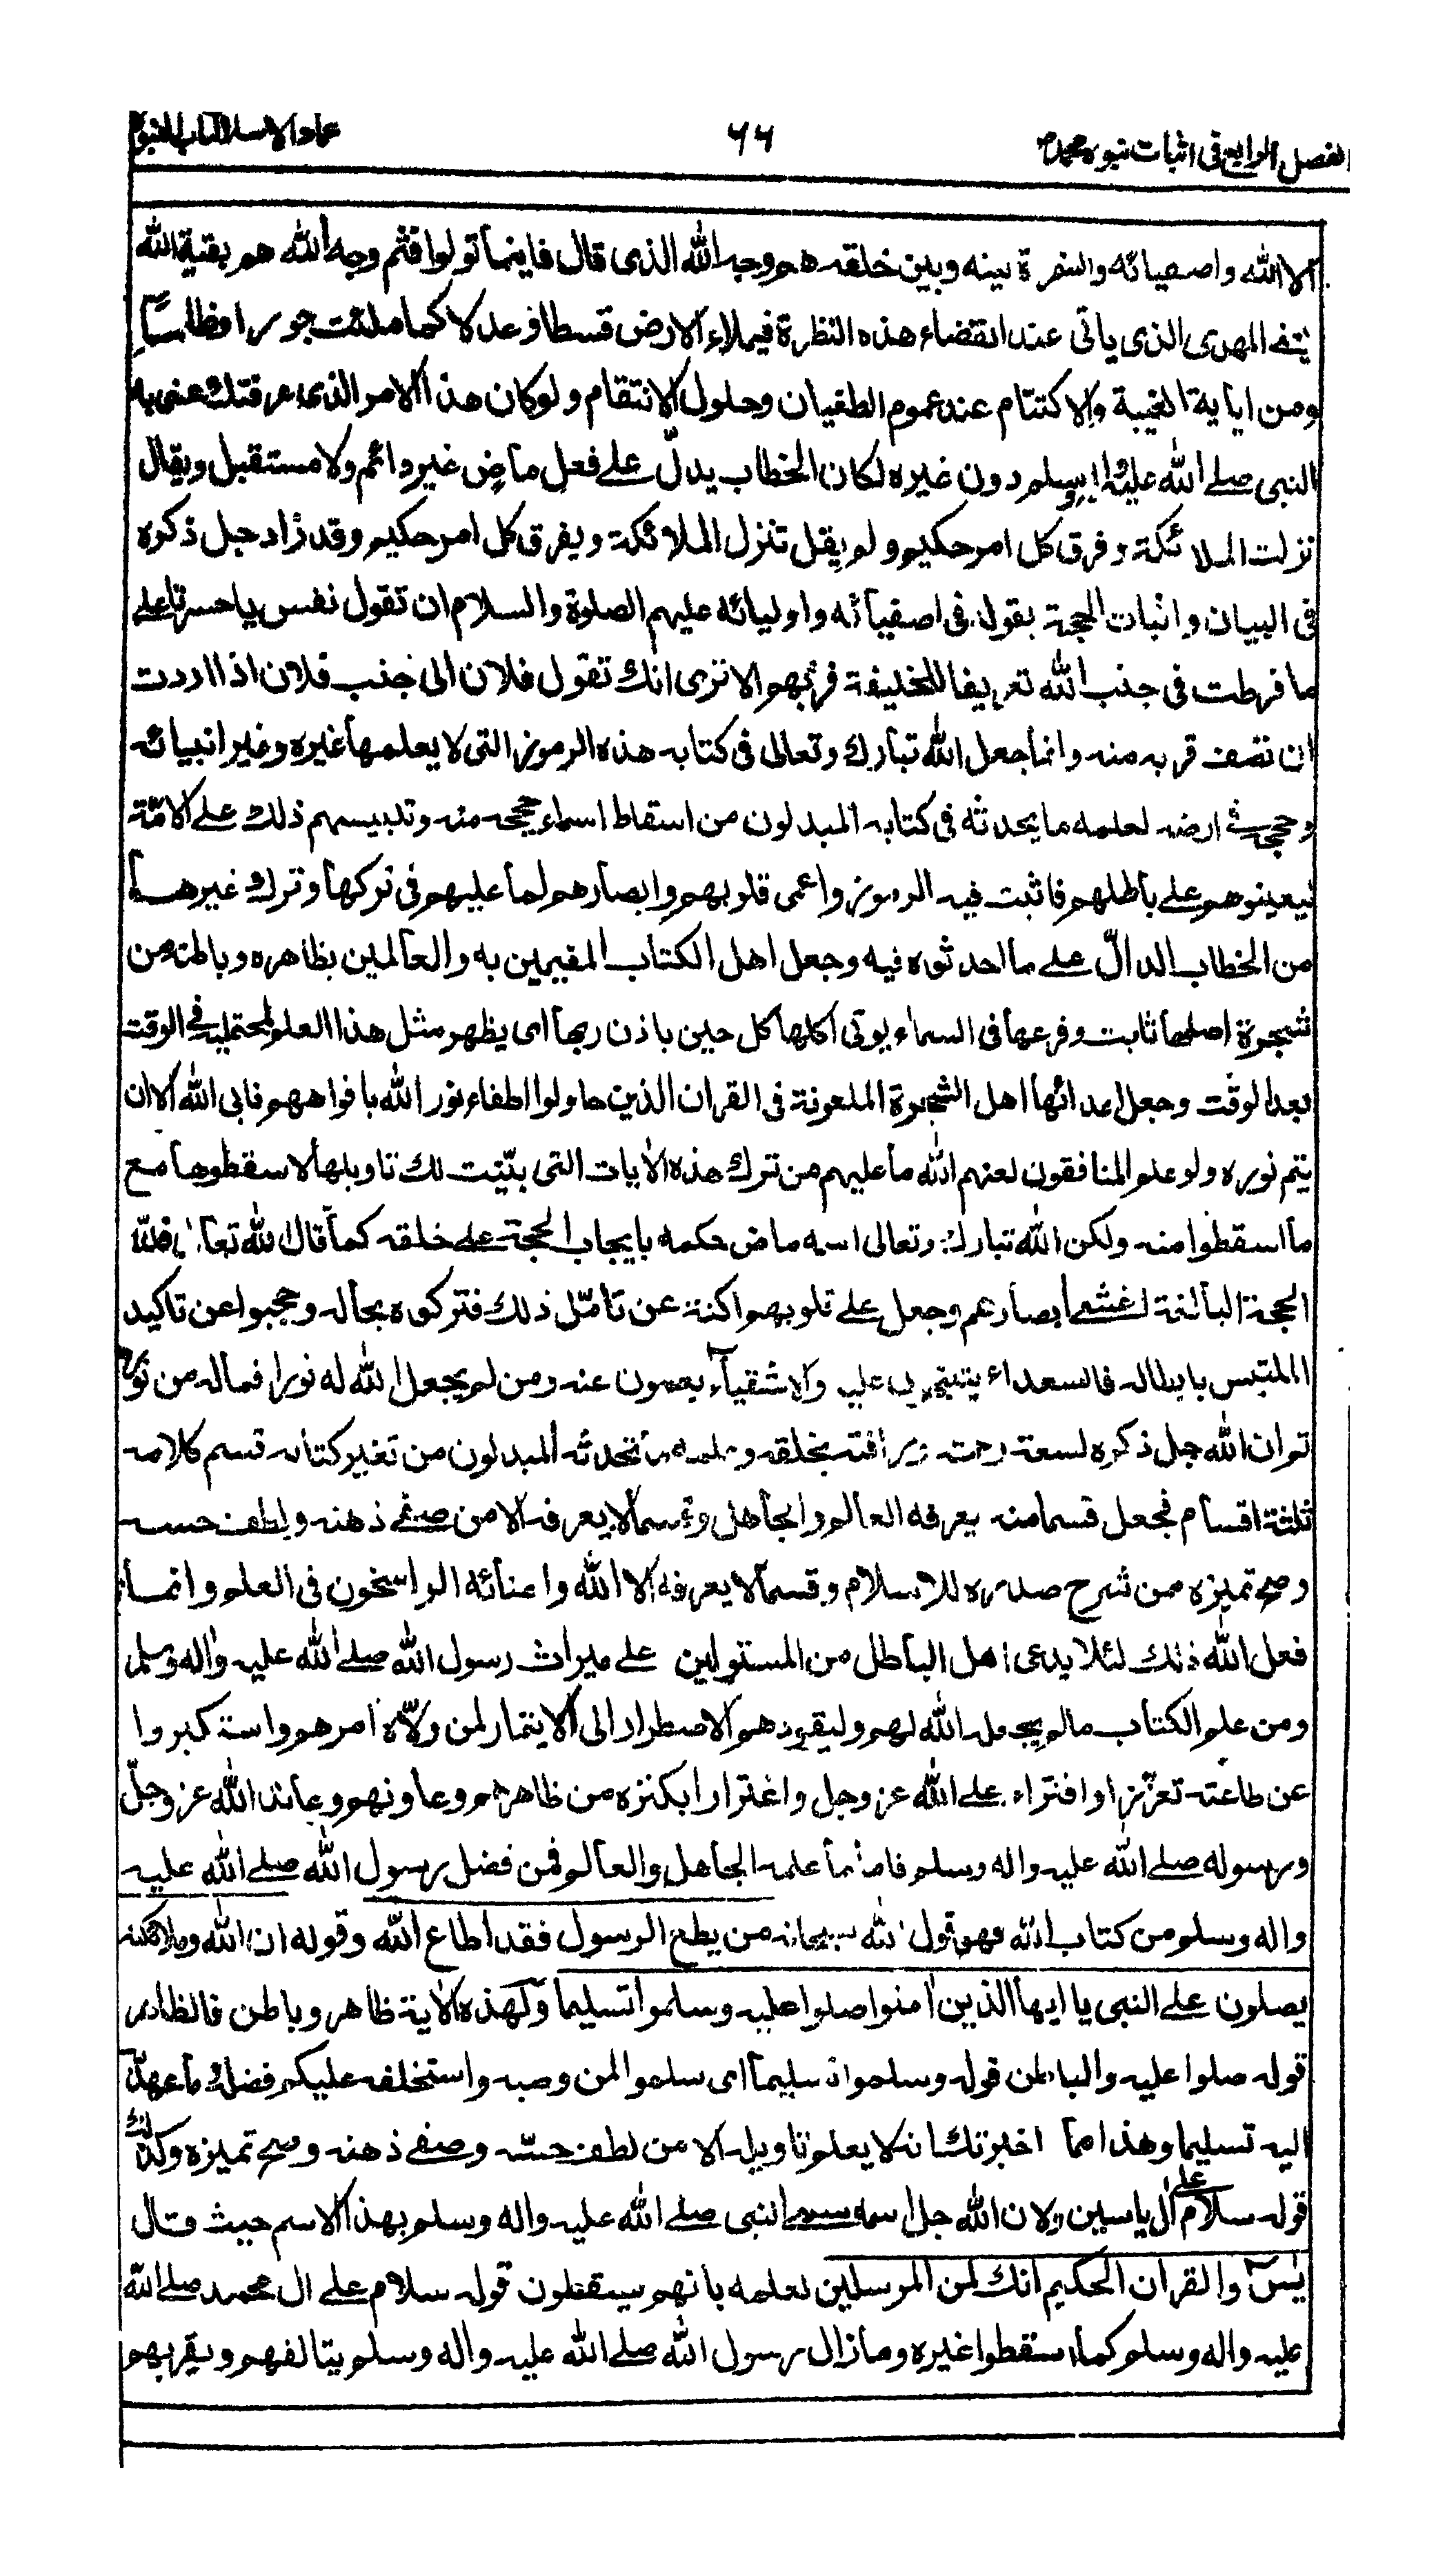 الفصل الرابع فى اثبات نبوة محمدؐ
٦٦
عماد الاسلام كتاب النبوة
الا الله واصفيائه والسفرة بينه وبين خلقه هم وجه الله الذى قال فاينما تولوا فثم وجه الله هم بقية الله
يعنى المهدى الذى ياتى عند انقضاء هذه النظرة فيملاء الارض قسطا وعدلا كما ملئت جورا وظلما
ومن اياته الغيبة والاكتتام عند عموم الطغيان وحلول الانتقام ولوكان هذا الامر الذى عرفتك عنى به
النبى صلے الله عليه واله وسلم دون غيره لكان الخطاب يدلّ علے فعل ماضٍ غير دائم ولا مستقبل ويقال
نزلت الملائكة وفرق كل امر حكيم ولم يقل تنزل الملائكة ويفرق كل امر حكيم وقد زاد جل ذكره
فى البيان واثبات الحجة بقوله فى اصفيائه واوليائه عليهم الصلوة والسلام ان تقول نفس ياحسرتا علے
ما فرطت فى جنب الله تعريفا للخليفة قربهم الا ترى انك تقول فلان الى جنب فلان اذا اردت
ان تصف قربه منه وانما جعل الله تبارك وتعالى فى كتابه هذه الرموز التى لا يعلمها غيره وغير انبيائه
وحججه فى ارضه لعلمه ما يحدثه فى كتابه المبدلون من اسقاط اسماء حججه منه وتلبيسهم ذلك علے الامّة
ليعينوهم علے باطلهم فاثبت فيه الرموز واعمى قلوبهم وابصارهم لما عليهم فى تركها وترك غيرها
من الخطاب الدالّ علے ما احدثوه فيه وجعل اهل الكتاب المقيمين به والعالمين بظاهره وباطنه من
شجرة اصلها ثابت وفرعها فى السماء يوتى اكلها كل حين باذن ربها اى يظهر مثل هذا العلم لمحتمليه فے الوقت
بعد الوقت وجعل اعدائها اهل الشجرة الملعونة فى القران الذين حاولوا اطفاء نور الله بافواههم فابى الله الا ان
يتم نوره ولو علم المنافقون لعنهم الله ما عليهم من ترك هذه الايات التى بيّنت لك تاويلها لاسقطوها مع
ما اسقطوا منه ولكن الله تبارك وتعالى اسمه ماض حكمه بايجاب الحجة علے خلقه كما قال الله تعالى فلله
الحجة البالغة اغشے ابصارهم وجعل علے قلوبهم اكنة عن تامّل ذلك فتركوه بحاله وحجبوا عن تاكيد
الملتبس بابطاله فالسعداء يتنبهون عليه والاشقياء يعمون عنه ومن لم يجعل الله له نورا فماله من نور
ثم ان الله جل ذكره لسعة رحمته ورافته بخلقه وعلمه بما تحدثه المبدلون من تغير كتابه قسم كلامه
ثلثة اقسام فجعل قسما منه يعرفه العالم والجاهل وقسما لا يعرفه الا من صفے ذهنه ولطف حسه
وصح تميزه من شرح صدره للاسلام وقسما لا يعرفه الا الله وامنائه الراسخون فى العلم وانما
فعل الله ذلك لئلا يدعى اهل الباطل من المستولين علے ميراث رسول الله صلے الله عليه واله وسلم
ومن علم الكتاب مالم يجعله الله لهم وليقودهم الاضطرار الى الايتمار لمن ولّاه امرهم واستكبروا
عن طاعته تعزّزا وافتراء علے الله عز وجل واغترارا بكنزه من ظاهرهم وعاونهم وعاند الله عز وجلّ
ورسوله صلے الله عليه واله وسلم فاما ما علمه الجاهل والعالم فمن فضل رسول الله صلے الله عليه
واله وسلم من كتاب الله فهو قول الله سبحانه من يطع الرسول فقد اطاع الله وقوله ان الله وملائكته
يصلون علے النبى يا ايها الذين امنوا صلوا عليه وسلموا تسليما ولهذه الاية ظاهر وباطن فالظاهر
قوله صلوا عليه والباطن قوله وسلموا تسليما اى سلموا لمن وصيه واستخلفه عليكم فضله وما عهد
اليه تسليما وهذا مما اخبرتك انه لا يعلم تاويله الا من لطف حسّه وصفے ذهنه وصح تميزه وكذلك
قوله سلام علے ال ياسين ولان الله جل اسمه سمے النبى صلے الله عليه واله وسلم بهذا الاسم حيث قال
يٰسٓ والقران الحكيم انك لمن المرسلين لعلمه بانهم سيقطون قوله سلام علے ال محمد صلے الله
عليه واله وسلم كما اسقطوا غيره ومازال رسول الله صلے الله عليه واله وسلم يتالفهم ويقربهم